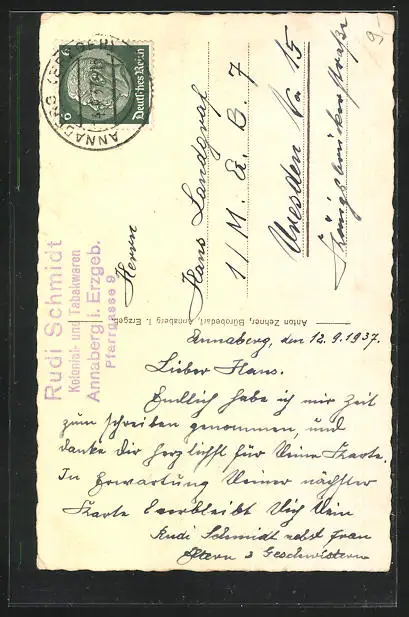 9.-
6
Deutsches Reich
ANNABERG (ERZGEB)
Rudi Schmidt
Kolonial- und Tabakwaren
Annaberg i. Erzgeb.
Pfarrgasse 9
Herrn
Hans Landgraf
1/ M. A. B. 7
Dresden Na 15
Königsbrückerstraße
Anton Zehner, Bürobedarf, Annaberg i. Erzgeb.
Annaberg, den 12.9.1937.
Lieber Hans.
Endlich habe ich mir Zeit
zum schreiben genommen, und
danke dir herzlichst für Deine Karte.
In Erwartung Deiner nächsten
Karte verbleibt Dich Dein
Rudi Schmidt nebst Frau
Eltern & Geschwistern